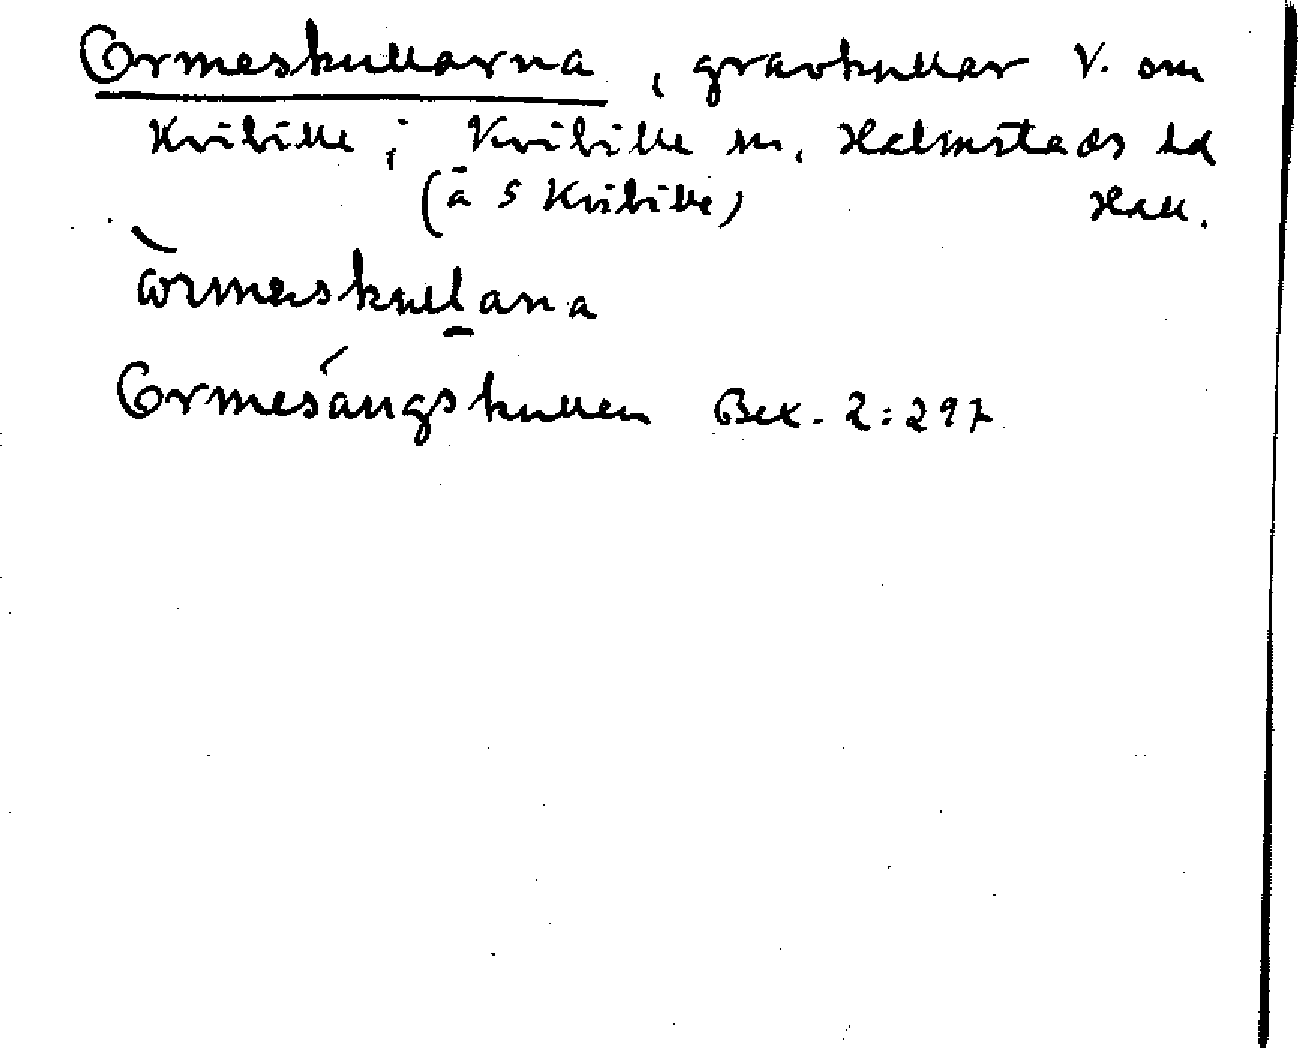 Ormeskullarna, gravkullar V. om
Kvibille i Kvibille sn, Halmstads hd
(å 5 Kvibille) Hall.
Ormesängskullen Bex. 2:297